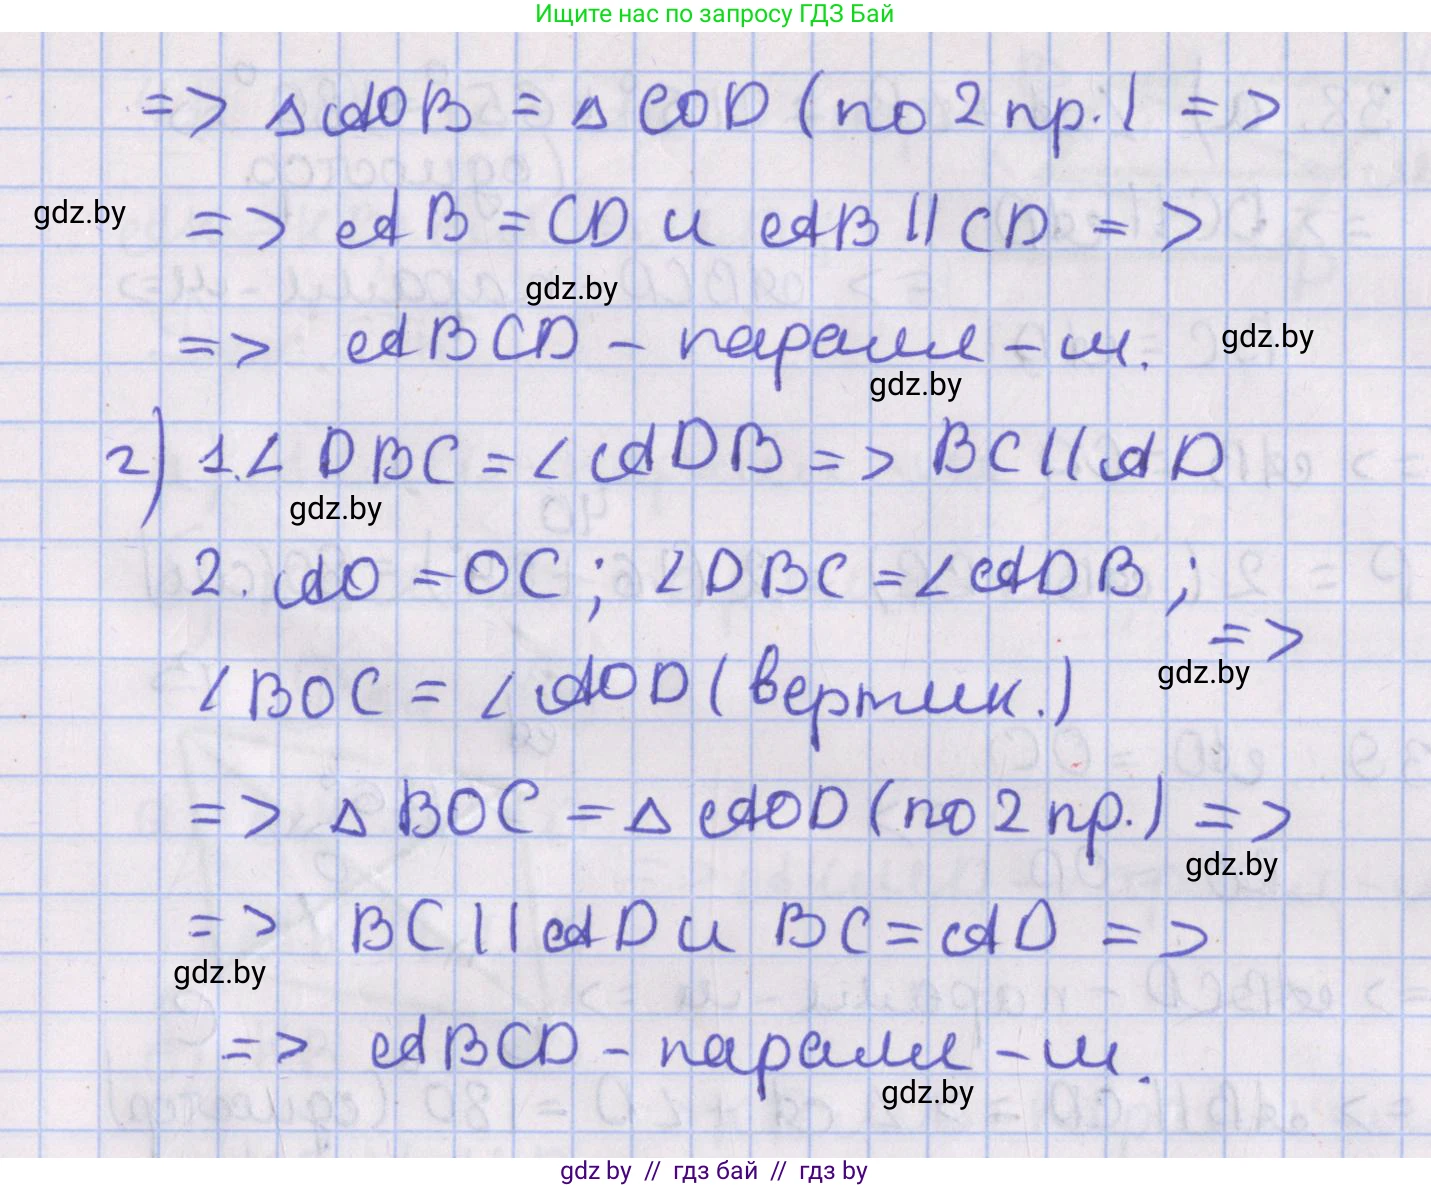 Ищите нас по запросу ГДЗ Бай
=> △AOB = △COD (по 2 пр.) =>
gdz.by
=> AB = CD и AB || CD =>
gdz.by
=> ABCD - паралл-м.
gdz.by
gdz.by
г) 1. ∠DBC = ∠ADB => BC || AD
gdz.by
2. AO = OC; ∠DBC = ∠ADB; =>
∠BOC = ∠AOD (вертик.)
gdz.by
=> △BOC = △AOD (по 2 пр.) =>
gdz.by
=> BC || AD и BC = AD =>
gdz.by
=> ABCD - паралл-м.
gdz.by
gdz.by // гдз бай // гдз by